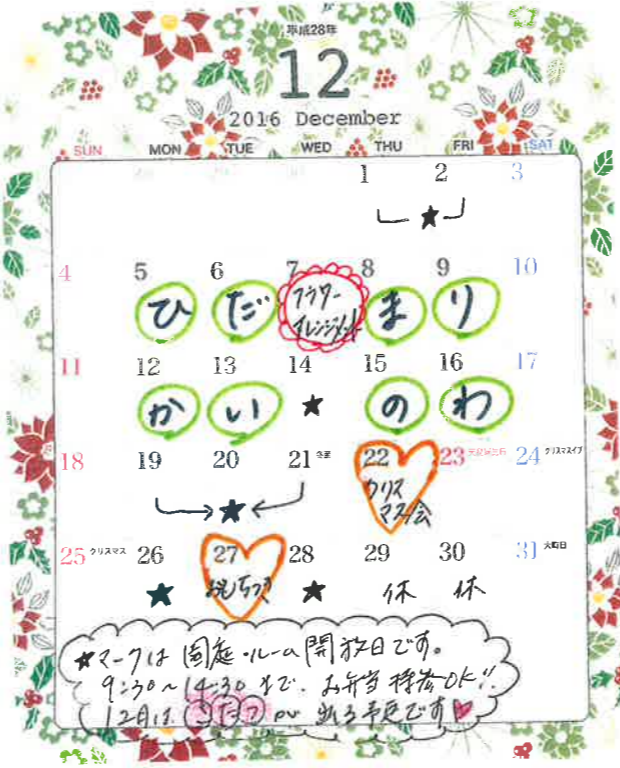 平成28年
12
2016 December
SUN MON TUE WED THU FRI SAT
1 2 3
★
4 5 6 7 8 9 10
ひ だ フラワーアレンジメント ま り
11 12 13 14 15 16 17
か い ★ の わ
18 19 20 21 冬至 22 23 天皇誕生日 24 クリスマスイブ
★ クリスマス会
25 クリスマス 26 27 28 29 30 31 大晦日
★ おもちつき ★ 休 休
★マークは園庭・ルーム開放日です。
9:30～14:30まで。お弁当持参OK!!
12日は こたつ が出る予定です